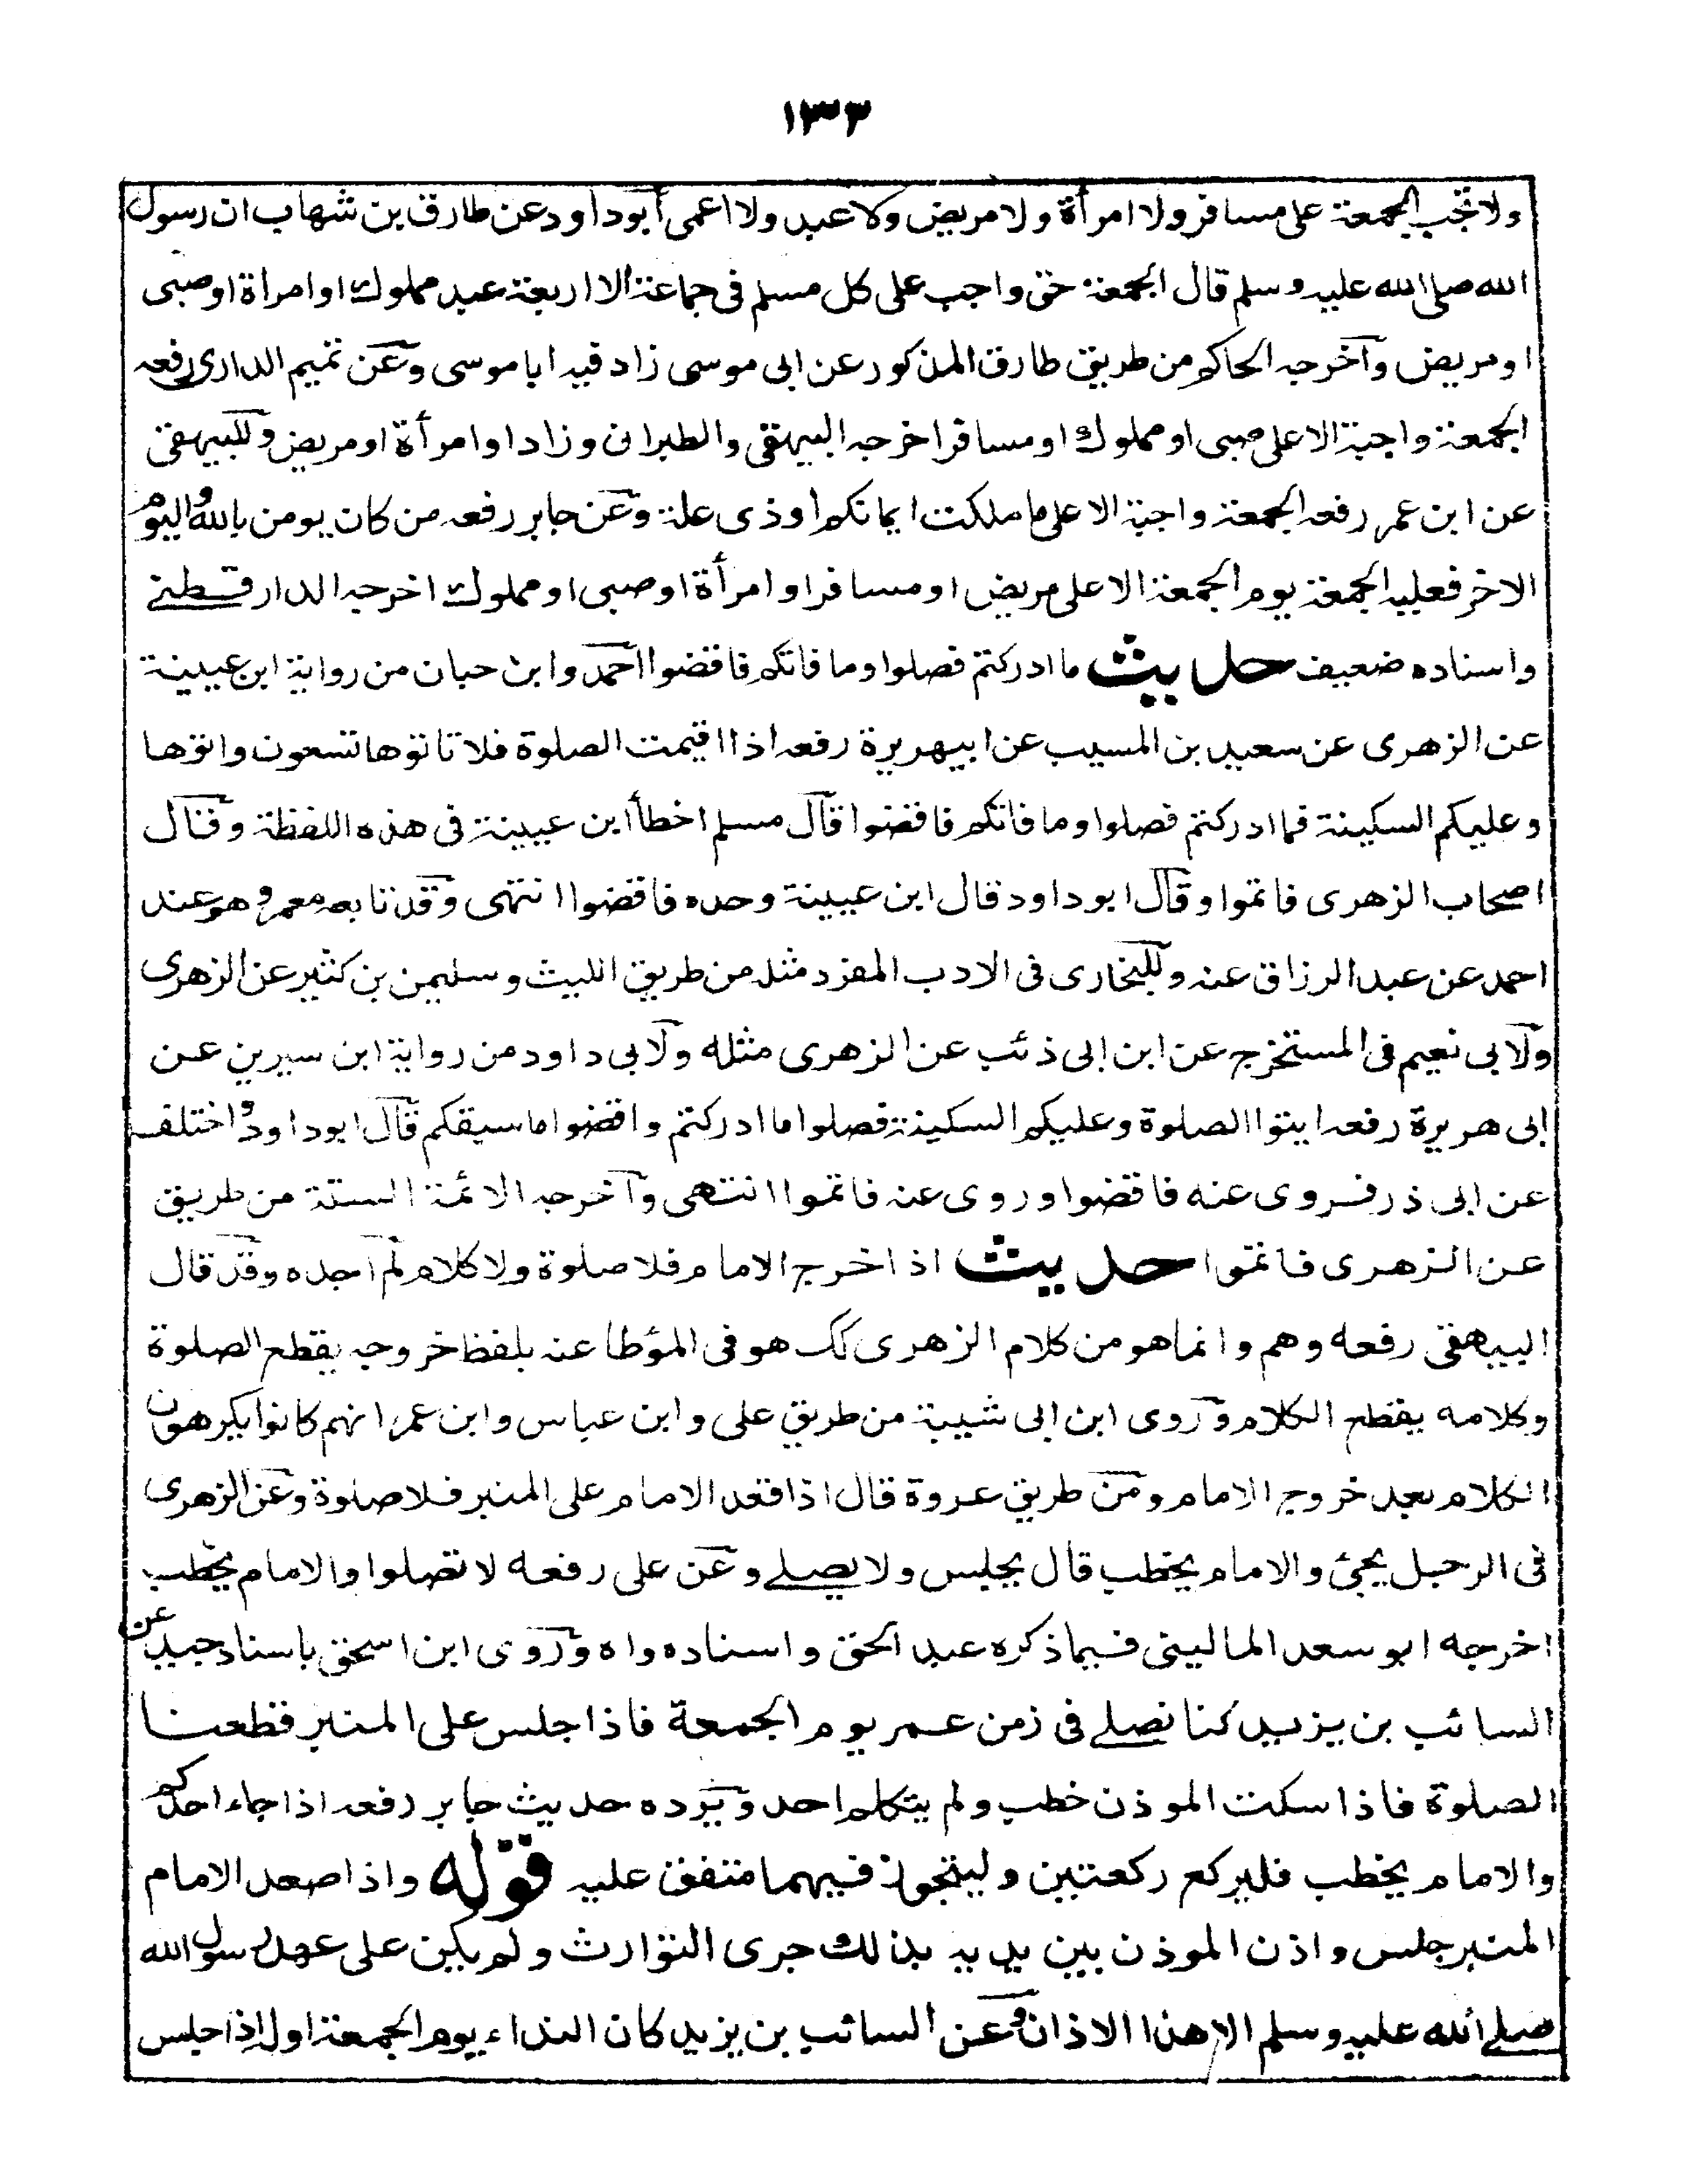 ١٣٣
ولا تجب الجمعة على مسافر ولا امرأة ولا مريض ولا عبد ولا اعمى أبو داود عن طارق بن شهاب ان رسول
الله صلى الله عليه وسلم قال الجمعة حق واجب على كل مسلم فى جماعة الا اربعة عبد مملوك او امراة او صبى
او مريض وآخرجه الحاكم من طريق طارق المذكور عن ابى موسى زاد فيه ابا موسى وعن تميم الدارى رفعه
الجمعة واجبة الا على صبى او مملوك او مسافر اخرجه البيهقى والطبرانى وزاد او امرأة او مريض وللبيهقى
عن ابن عمر رفعه الجمعة واجبة الا على ما ملكت ايمانكم او ذى علة وعن جابر رفعه من كان يومن بالله واليوم
الاخر فعليه الجمعة يوم الجمعة الا على مريض او مسافر او امرأة او صبى او مملوك اخرجه الدارقطنے
واسناده ضعيف حديث ما ادركتم فصلوا وما فاتكم فاقضوا احمد وابن حبان من رواية ابن عيينة
عن الزهرى عن سعيد بن المسيب عن ابيهريرة رفعه اذا اقيمت الصلوة فلا تاتوها تسعون واتوها
وعليكم السكينة فما ادركتم فصلوا وما فاتكم فاقضوا قال مسلم اخطأ ابن عيينة فى هذه اللفظة وقال
اصحاب الزهرى فاتموا وقال ابو داود قال ابن عيينة وحده فاقضوا انتهى وقد تابعه معمر وهو عند
احمد عن عبد الرزاق عنه وللبخارى فى الادب المفرد مثله من طريق الليث وسليمن بن كثير عن الزهرى
ولابى نعيم فى المستخرج عن ابن ابى ذئب عن الزهرى مثله ولابى داود من رواية ابن سيرين عن
ابى هريرة رفعه ايتوا الصلوة وعليكم السكينة فصلوا ما ادركتم واقضوا ما سبقكم قال ابو داود واختلف
عن ابى ذر فروى عنه فاقضوا وروى عنه فاتموا انتهى وآخرجه الائمة الستة من طريق
عن الزهرى فاتموا حديث اذا خرج الامام فلا صلوة ولا كلام لم اجده وقد قال
البيهقى رفعه وهم وانما هو من كلام الزهرى كك هو فى المؤطا عنه بلفظ خروجه يقطع الصلوة
وكلامه يقطع الكلام وروى ابن ابى شيبة من طريق على وابن عباس وابن عمر انهم كانوا يكرهون
الكلام بعد خروج الامام ومن طريق عروة قال اذا قعد الامام على المنبر فلا صلوة وعن الزهرى
فى الرجل يجئ والامام يخطب قال يجلس ولا يصلے وعن على رفعه لا تصلوا والامام يخطب
اخرجه ابو سعد المالينى فيما ذكره عبد الحق واسناده واه وروى ابن اسحق باسناد جيد عن
السائب بن يزيد كنا نصلے فى زمن عمر يوم الجمعة فاذا جلس على المنبر قطعنا
الصلوة فاذا سكت الموذن خطب ولم يتكلم احد ويرده حديث جابر رفعه اذا جاء احدكم
والامام يخطب فليركع ركعتين وليتجوز فيهما متفق عليه قوله واذا صعد الامام
المنبر جلس واذن الموذن بين يديه بذلك جرى التوارث ولم يكن على عهد رسول الله
صلے الله عليه وسلم الا هذا الاذان وعن السائب بن يزيد كان النداء يوم الجمعة اوله اذا جلس